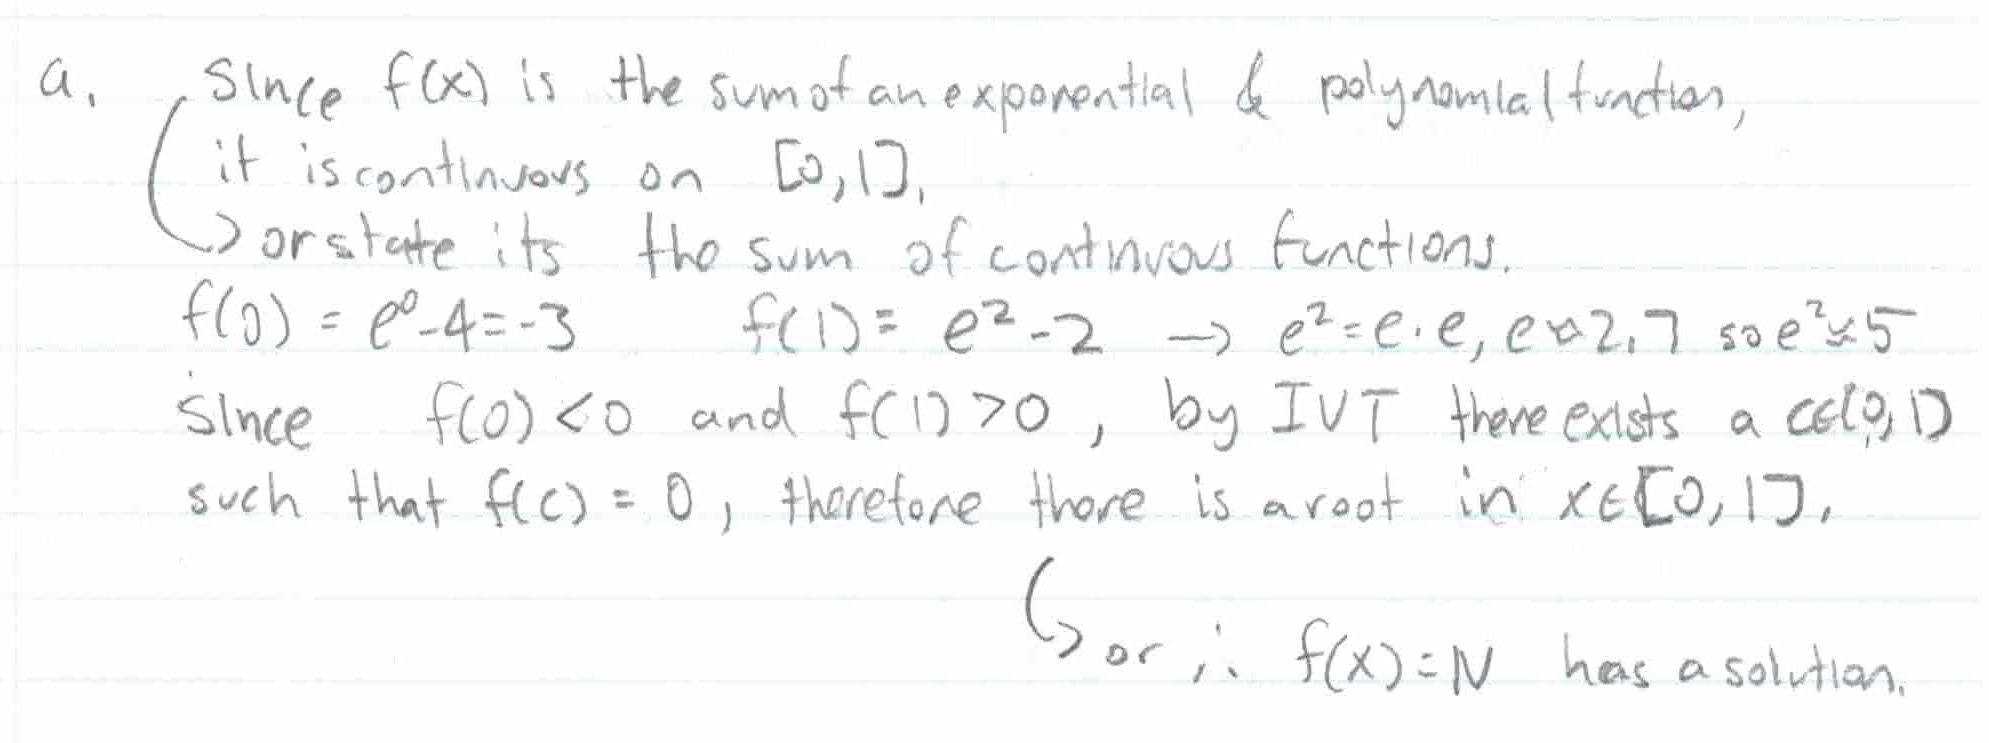 a. Since f(x) is the sum of an exponential & polynomial function,
it is continuous on [0,1].
↳ or state its the sum of continuous functions.
f(0) = e⁰-4=-3 f(1)= e²-2 → e²=e·e, e≈2.7 so e²≈5
Since f(0)<0 and f(1)>0, by IVT there exists a c∈(0,1)
such that f(c)=0, therefore there is a root in x∈[0,1].
↳ or ∴ f(x)=N has a solution.